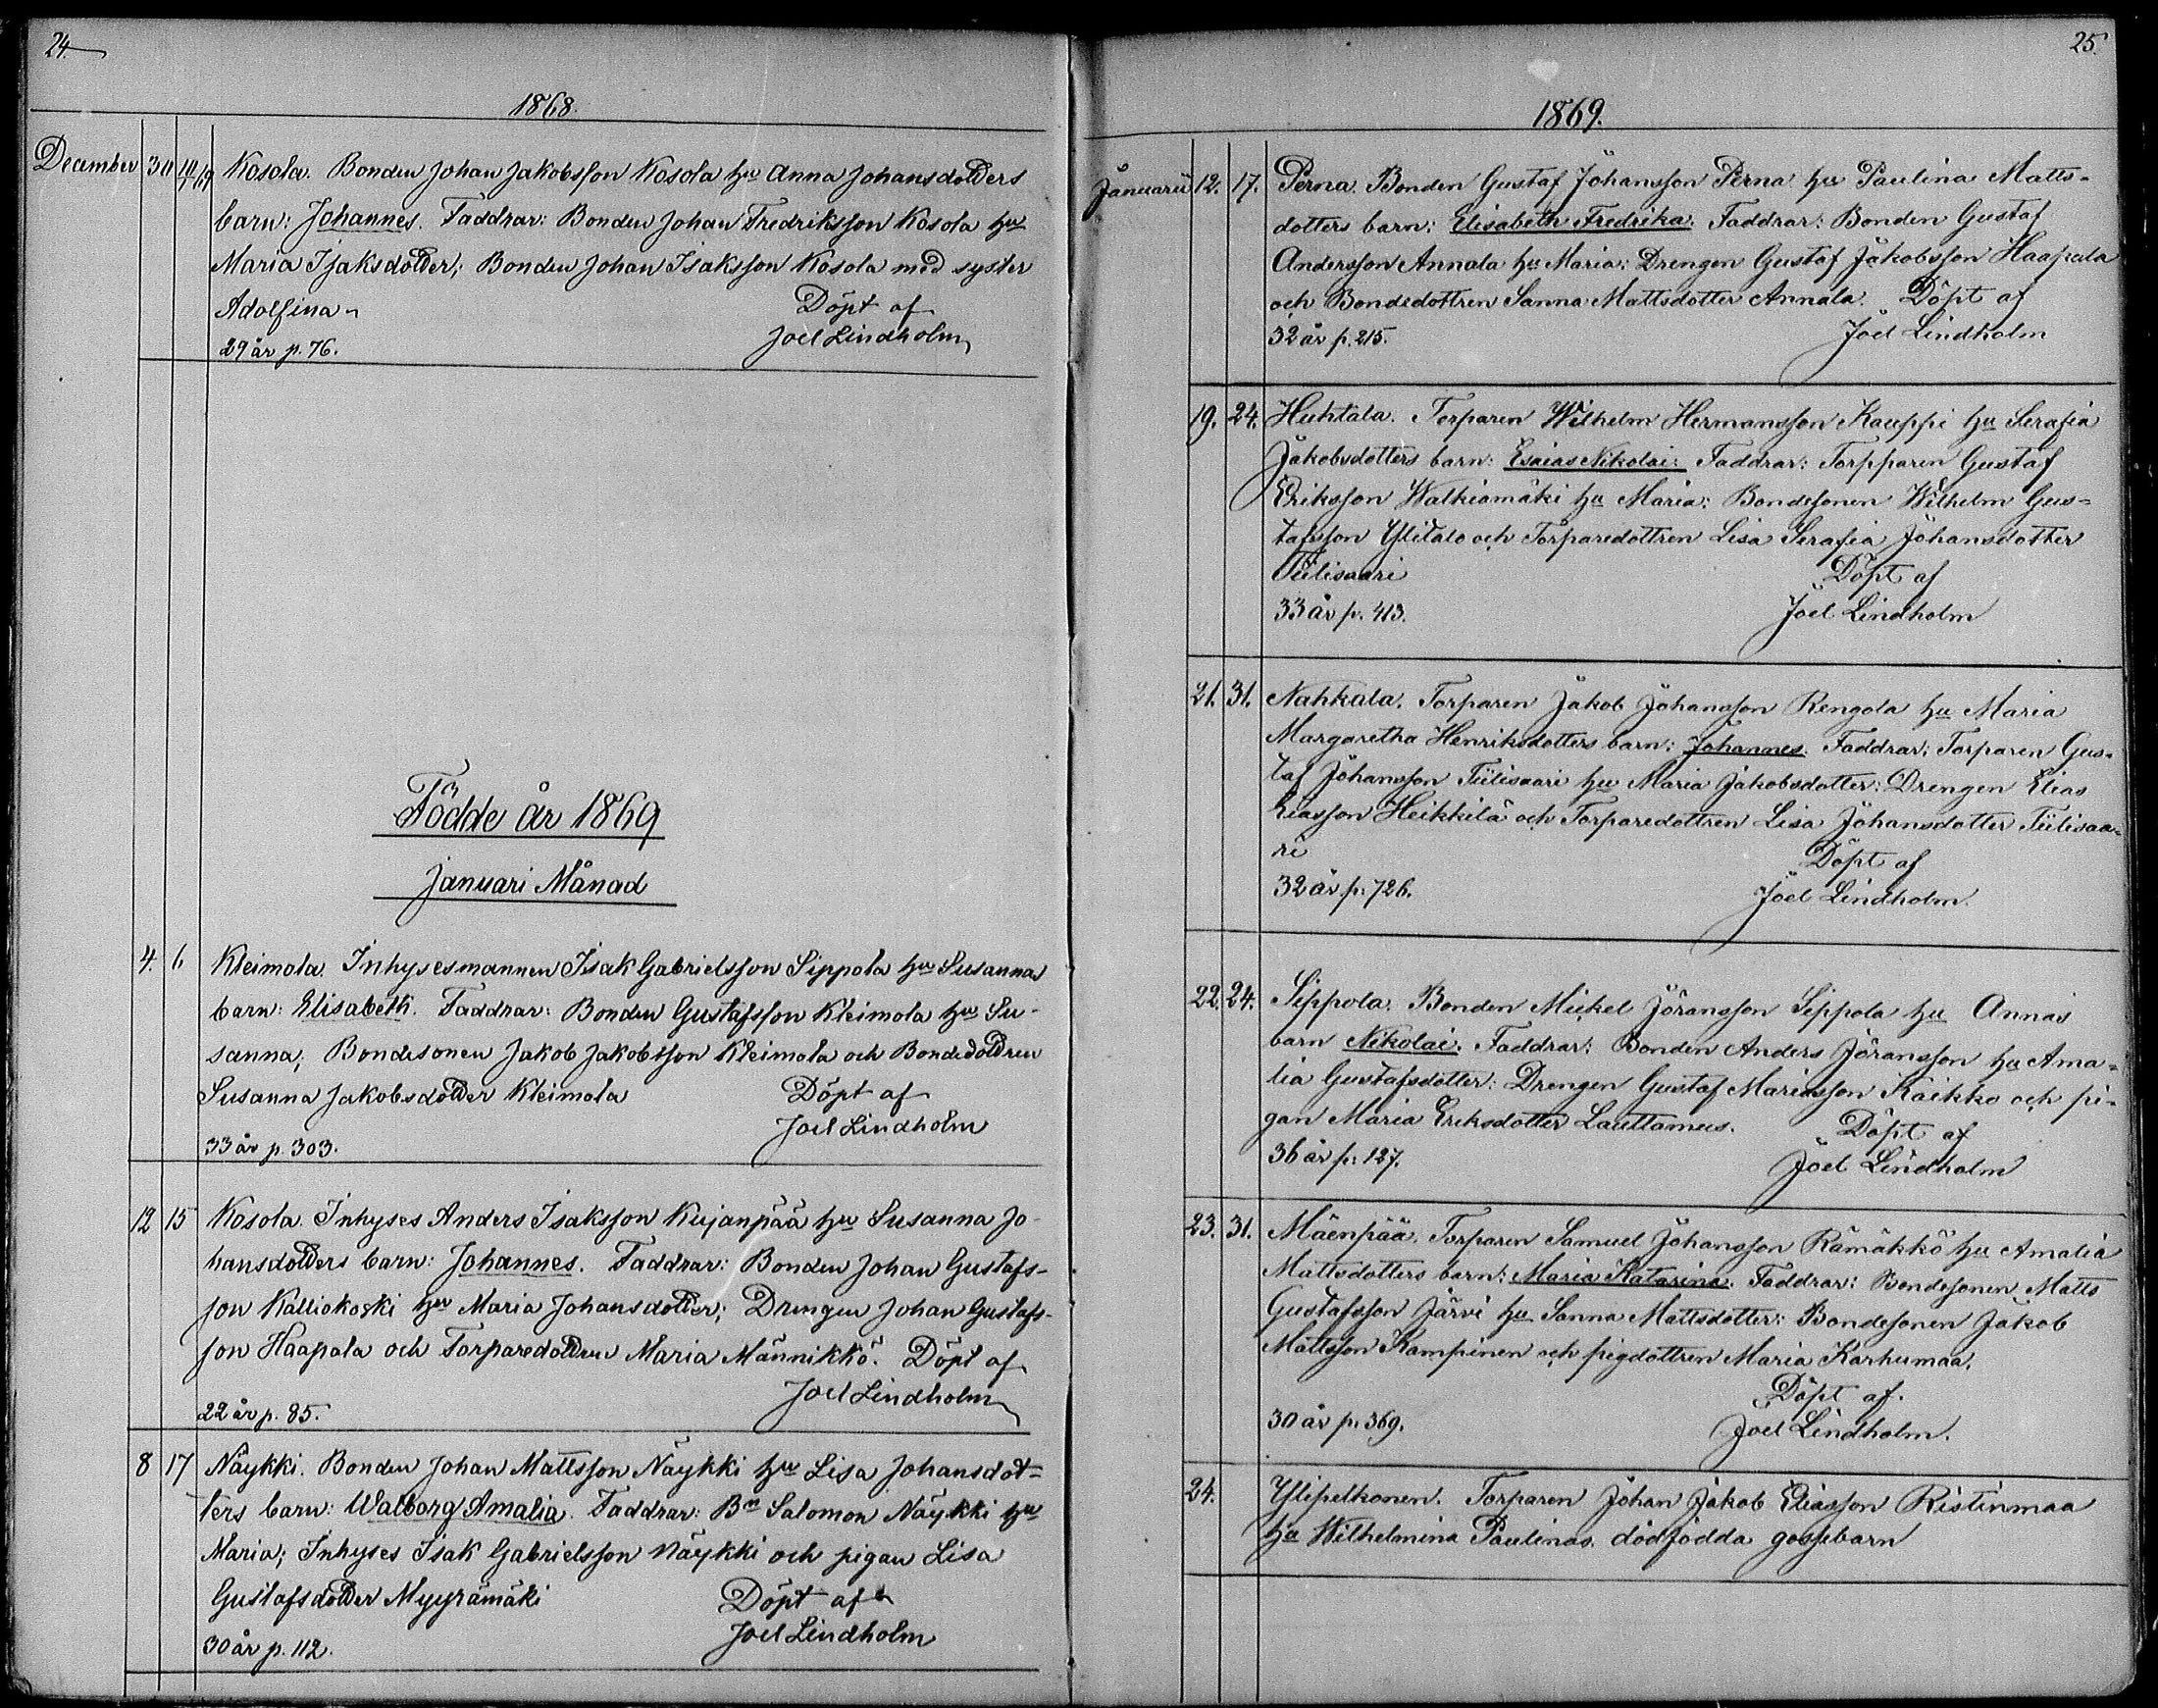 24.
1868.
December 30 10/1 69 Kosola. Bonden Johan Jakobsson Kosola hu Anna Johansdotters
barn: Johannes. Faddrar: Bonden Johan Fredriksson Kosola hu
Maria Isaksdotter; Bonden Johan Isaksson Kosola med syster
Adolfina
Döpt af
29 år p. 76.
Joel Lindholm
Födde år 1869
Januari Månad
4. 6 Kleimola. Inhysesmannen Isak Gabrielsson Sippola hu Susannas
barn: Elisabeth. Faddrar: Bonden Gustafsson Kleimola hu Su-
sanna; Bondesonen Jakob Jakobsson Kleimola och Bondedottren
Susanna Jakobsdotter Kleimola Döpt af
Joel Lindholm
33 år p. 303.
12 15 Kosola. Inhyses Anders Isaksson Kujanpää hu Susanna Jo-
hansdotters barn: Johannes. Faddrar: Bonden Johan Gustafs-
son Kalliokoski hu Maria Johansdotter; Drengen Johan Gustafs-
son Haapala och Torparedottren Maria Männikkö. Döpt af
Joel Lindholm
22 år p. 85.
8 17 Näykki. Bonden Johan Mattsson Näykki hu Lisa Johansdot-
ters barn: Walborg Amalia. Faddrar: Bn Salomon Näykki hu
Maria; Inhyses Isak Gabrielsson Näykki och pigan Lisa
Gustafsdotter Myyrämäki Döpt af
Joel Lindholm
30 år p. 112.
25.
1869.
Januarii 12. 17. Perna. Bonden Gustaf Johansson Perna hu Paulina Matts-
dotters barn: Elisabeth Fredrika. Faddrar: Bonden Gustaf
Andersson Annala hu Maria: Drengen Gustaf Jakobsson Haapala
och Bondedottren Sanna Mattsdotter Annala. Döpt af
32 år p. 215. Joel Lindholm
19. 24. Huhtala. Torparen Wilhelm Hermansson Kauppi hu Serafia
Jakobsdotters barn: Esaias Nikolai: Faddrar: Torpparen Gustaf
Eriksson Walkiamäki hu Maria: Bondesonen Wilhelm Gus-
tafsson Ylitalo och Torparedottren Lisa Serafia Johansdotter
Tiilisaari Döpt af
33 år p. 413. Joel Lindholm
21. 31. Nahkala. Torparen Jakob Johansson Rengola hu Maria
Margaretha Henriksdotters barn: Johannes. Faddrar: Torparen Gus-
taf Johansson Tiilisaari hu Maria Jakobsdotter: Drengen Elias
Eiasson Heikkilä och Torparedottren Lisa Johansdotter Tiilisaa-
ri Döpt af
32 år p. 726. Joel Lindholm.
22. 24. Sippola. Bonden Mickel Jöransson Sippola hu Annas
barn Nikolai. Faddrar: Bonden Anders Jöransson hu Ama-
lia Gustafsdotter: Drengen Gustaf Mariasson Kaikko och pi-
gan Maria Eriksdotter Lauttamus. Döpt af
36 år p. 127. Joel Lindholm
23. 31. Mäenpää. Torparen Samuel Johansson Rämäkkö hu Amalia
Mattsdotters barn: Maria Katarina. Faddrar: Bondesonen Matts
Gustafsson Järvi hu Sanna Mattsdotter: Bondesonen Jakob
Mattsson Kampinen och pigdottren Maria Karhumaa.
Döpt af.
30 år p. 369. Joel Lindholm.
24. Ylipelkonen. Torparen Johan Jakob Eliasson Ristinmaa
hu Wilhelmina Paulinas dödfödda gossebarn